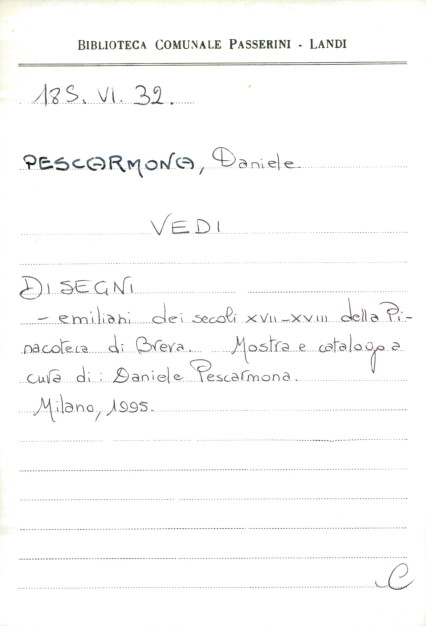 BIBLIOTECA COMUNALE PASSERINI - LANDI
18S. VI. 32.
PESCARMONA, Daniele
VEDI
DISEGNI
- emiliani dei secoli XVII-XVIII della Pi-
nacoteca di Brera. Mostra e catalogo a
cura di: Daniele Pescarmona.
Milano, 1995.
C